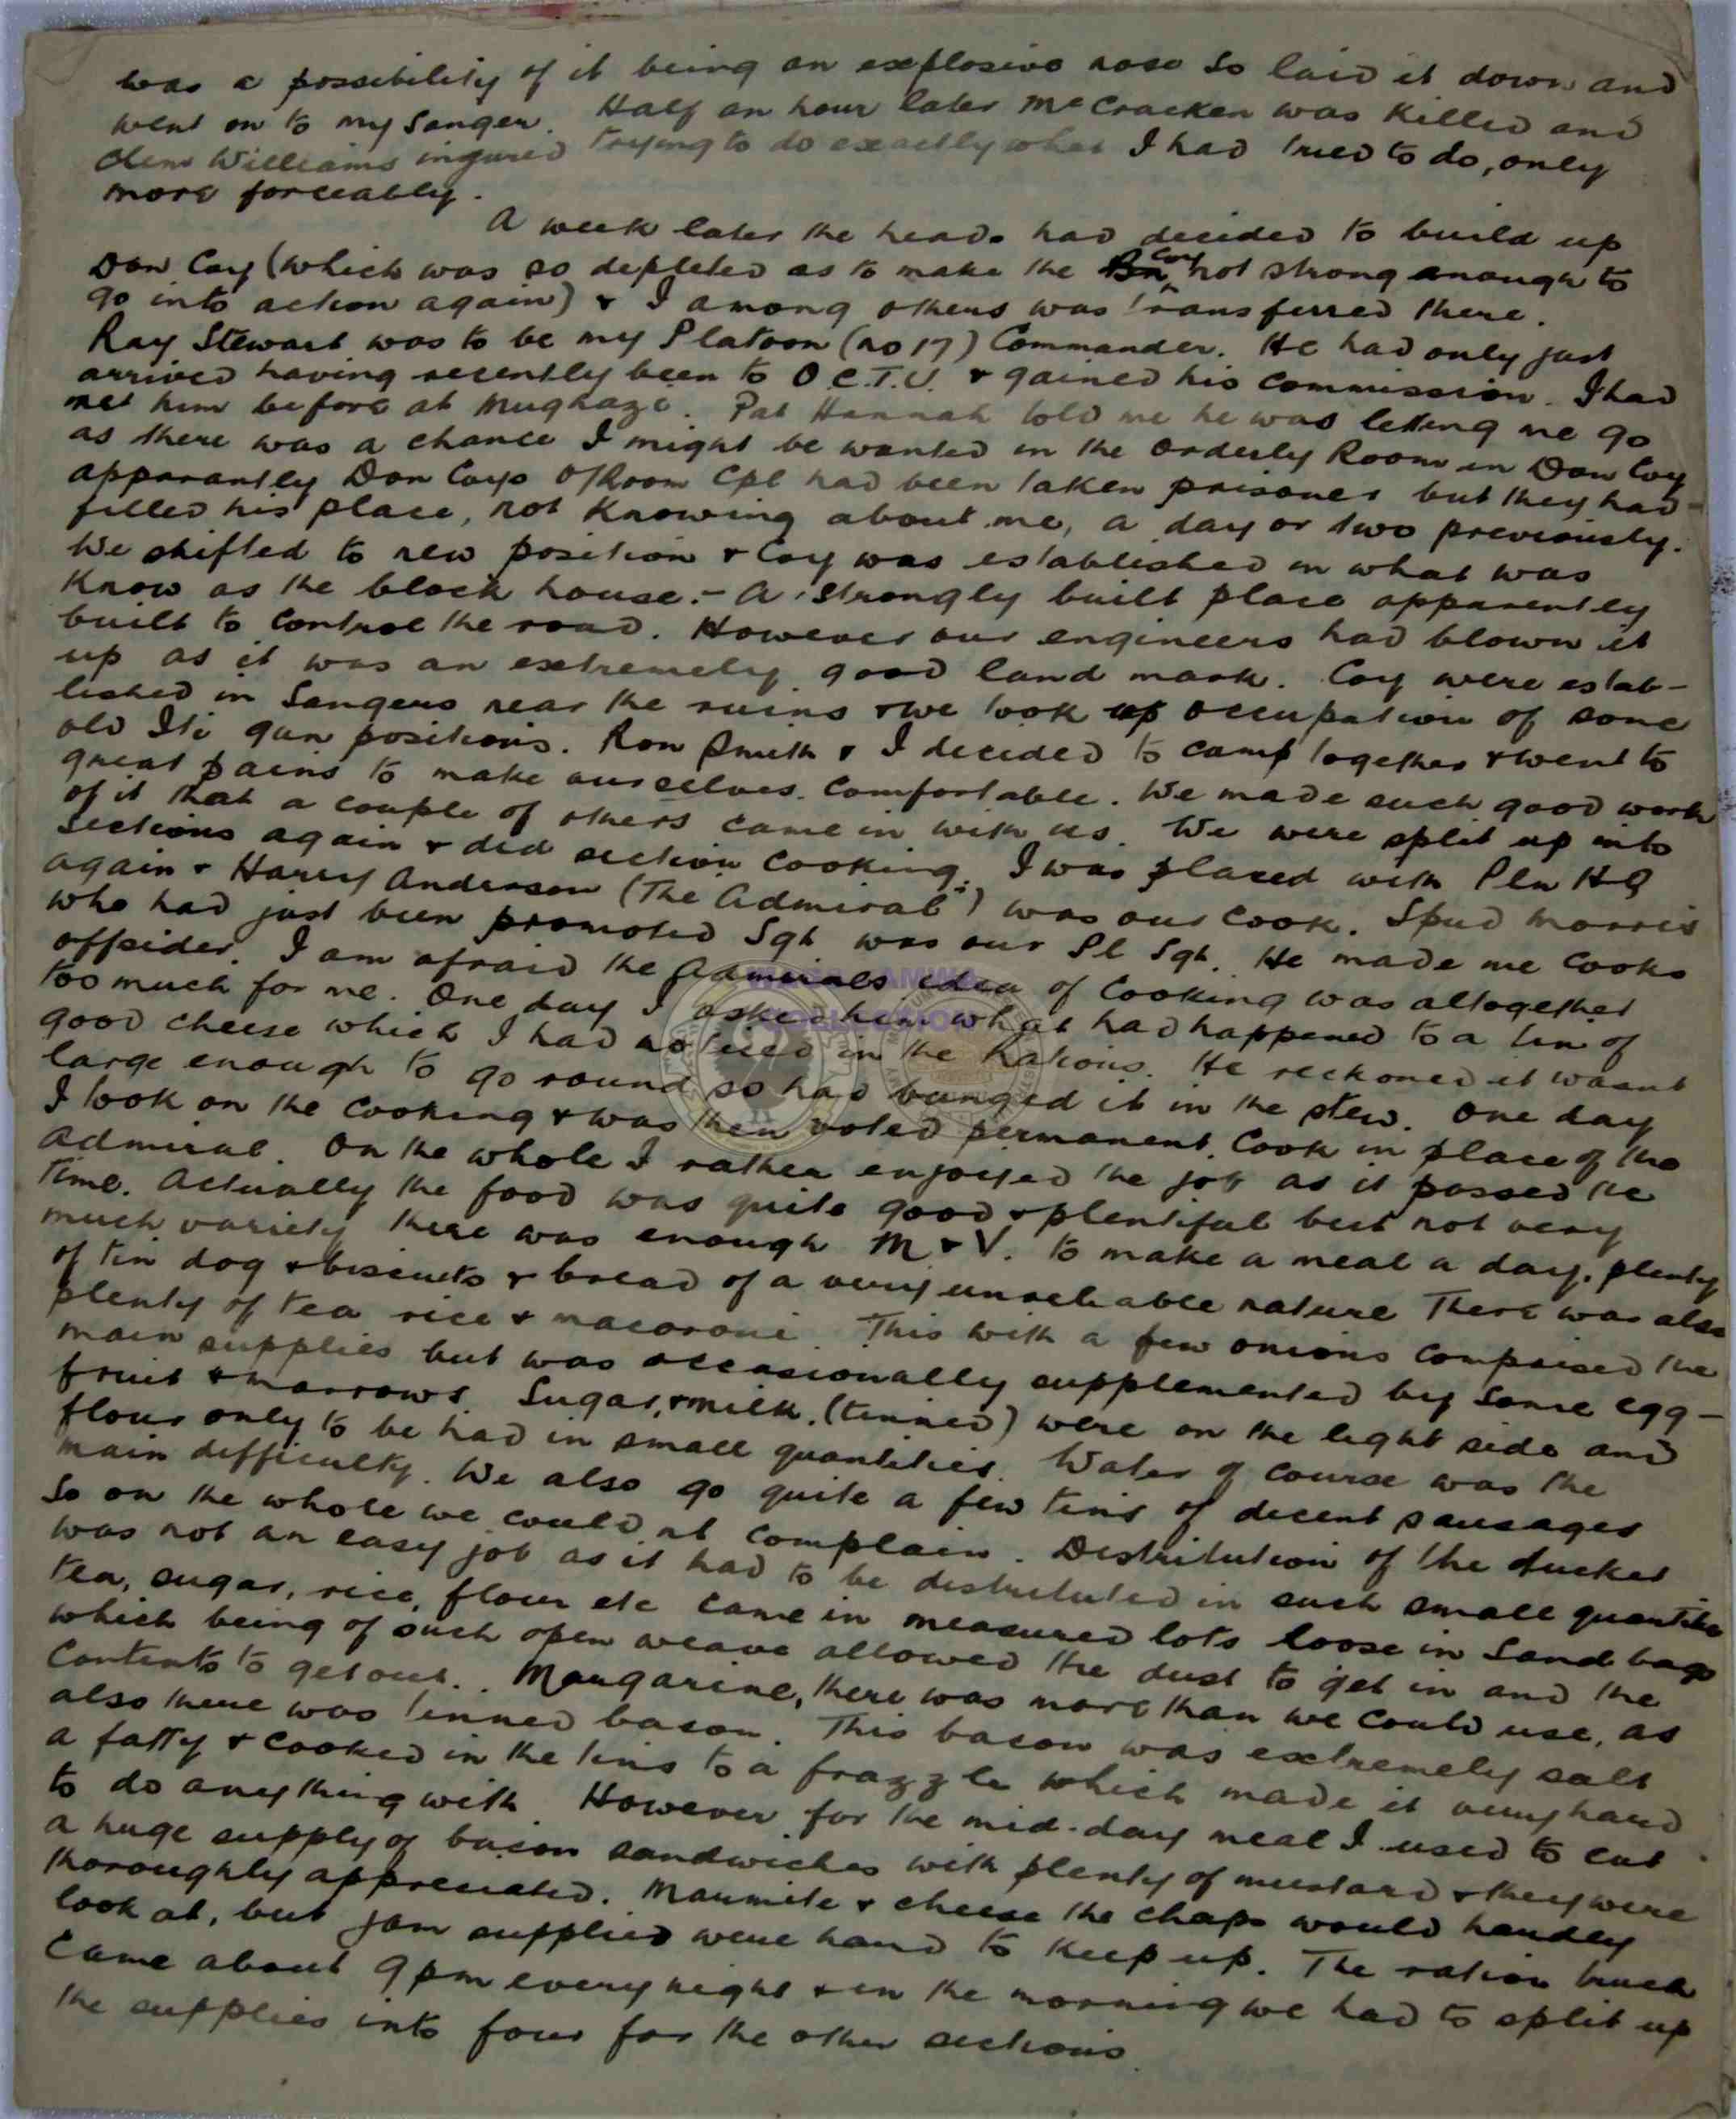 was a possibility of it being an explosive nose so laid it down and
went on to my Sanger. Half an hour later McCracken was killed and
Clem Williams ingured trying to do exactly what I had tried to do, only
more forceably.
A week later the heads had decided to build up
Don Coy (which was so depleted as to make the Coy not strong enough to
go into action again) & I among others was transferred there.
Ray Stewart was to be my Platoon (no 17) Commander. He had only just
arrived having recently been to O.C.T.U. & gained his commission. I had
met him before at Mughazi. Pat Hannah told me he was letting me go
as there was a chance I might be wanted in the Orderly Room in Don Coy
apparantly Don Coys O/Room Cpl had been taken prisoner but they had
filled his place, not knowing about me, a day or two previously.
We shifted to new position & Coy was established in what was
know as the block house:- A strongly built place apparently
built to control the road. However our engineers had blown it
up as it was an extremely good land mark. Coy were estab-
lished in Sangers near the ruins & we took up occupation of some
old Iti gun positions. Ron Smith & I decided to camp together & went to
great pains to make ourselves comfortable. We made such good work
of it that a couple of others came in with us. We were split up into
sections again & did section cooking. I was placed with Pln HQ
again & Harry Anderson (The Admiral") was our cook. Spud Morris
who had just been promoted Sgt was our Pl Sgt. He made me cooks
offsider. I am afraid the Admirals idea of cooking was altogether
too much for me. One day I asked him what had happened to a tin of
good cheese which I had noticed in the rations. He reckoned it wasnt
large enough to go round so had bunged it in the stew. One day
I took on the cooking & was then voted permanent cook in place of the
Admiral. On the whole I rather enjoyed the job as it passed the
time. Actually the food was quite good & plentiful but not very
much variety there was enough M & V. to make a meal a day, plenty
of tin dog & biscuits & bread of a very unreliable nature There was also
plenty of tea rice & macoroni This with a few onions comprised the
main supplies but was occasionally supplemented by some egg-
fruit & marrows. Sugar, & milk, (tinned) were on the light side and
flour only to be had in small quantities. Water of course was the
main difficulty. We also go quite a few tins of decent sausages
so on the whole we could nt complain. Distribution of the tucker
was not an easy job as it had to be distributed in such small quantities
tea, sugar, rice, flour etc came in measured lots loose in sand bags
which being of such open weave allowed the dust to get in and the
contents to get out. Margarine, there was more than we could use, as
also there was tinned bacon. This bacon was extremely salt
a fatty & cooked in the tins to a frazzle which made it very hard
to do anything with However for the mid-day meal I used to cut
a huge supply of bacon sandwiches with plenty of mustard & they were
thoroughly appreciated. Marmite & cheese the chaps would hardly
look at, but jam supplies were hard to keep up. The ration truck
came about 9 pm every night & in the morning we had to split up
the supplies into four for the other sections.